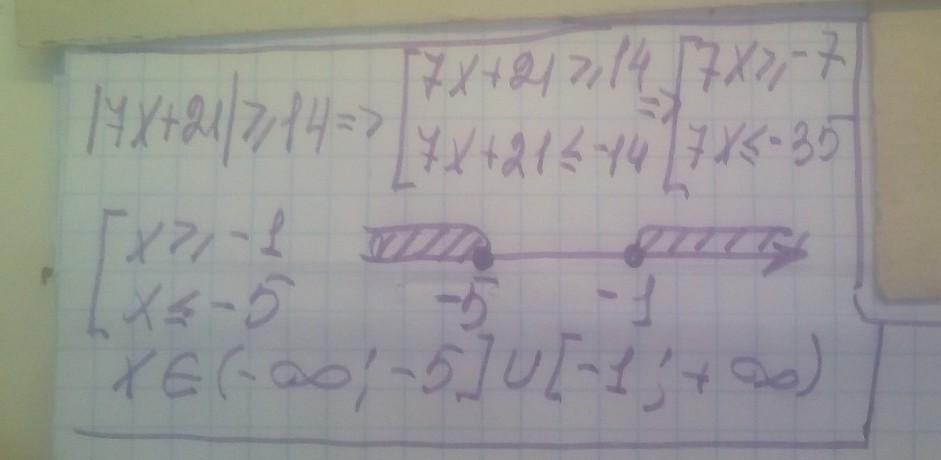 |7x+21|⩾14=> [7x+21⩾14 => [7x⩾-7
[7x+21≤-14 [7x≤-35
[x⩾-1
[x≤-5
-5 -1
x∈(-∞;-5]∪[-1;+∞)